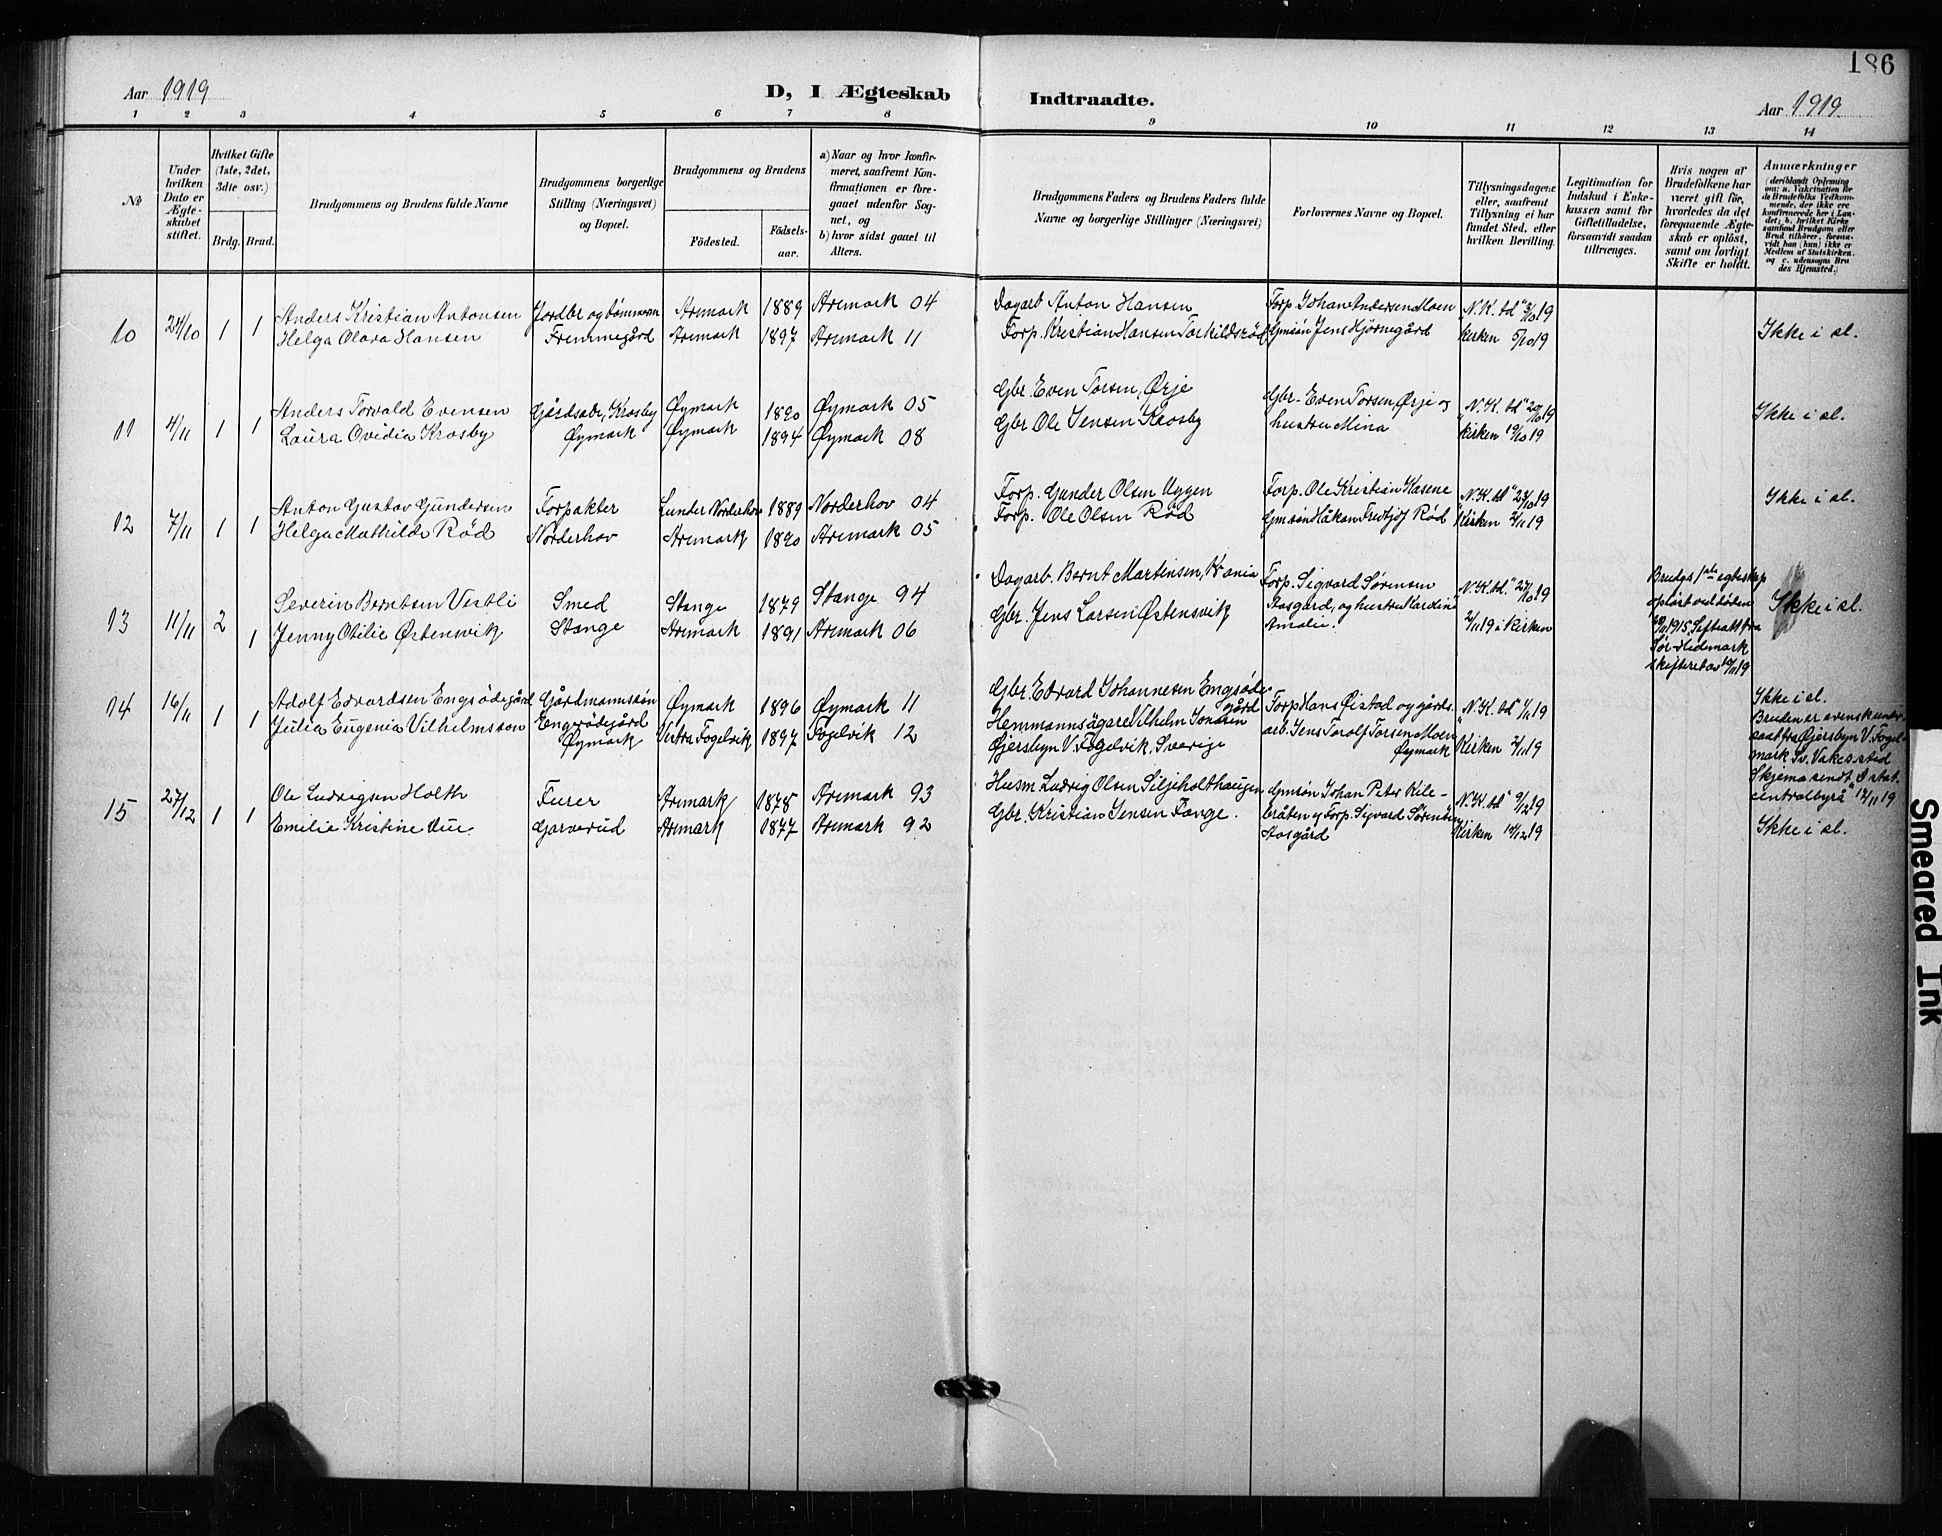 186
Aar 1919
D, I Ægteskab Indtraadte.
Aar 1919
1 2 3 4 5 6 7 8 9 10 11 12 13 14
No
Under hvilken Dato er Ægteskabet stiftet.
Hvilket Gifte (1ste, 2det, 3die osv.)
Brdg. Brud.
Brudgommens og Brudens fulde Navne
Brudgommens borgerlige Stilling (Næringsvei) og Bopæl.
Brudgommens og Brudens
Födested.
Födselsaar.
a) Naar og hvor konfirmeret, saafremt Konfirmationen er foregaaet udenfor Sognet, og
b) hvor sidst gaaet til Alters.
Brudgommens Faders og Brudens Faders fulde Navne og borgerlige Stillinger (Næringsvei)
Forlovernes Navne og Bopæl.
Tillysningsdagene eller, saafremt Tillysning ei har fundet Sted, efter hvilken Bevilling.
Legitimation for Indskud i Enkekassen samt for Giftetilladelse, forsaavidt saadan tiltrænges.
Hvis nogen af Brudefolkene har været gift før, hvorledes da det foregaaende Ægteskab er oplöst, samt om lovligt Skifte er holdt.
Anmærkninger
10 24/10 1 1
Anders Kristian Antonsen
Helga Olava Hansen
Jordbr og tømmerm
Fremmegård
Aremark 1889 Aremark 04
Aremark 1897 Aremark 11
Dagarb Anton Hansen
Forp. Kristian Hansen Torkildsrød
Forp Johan Andersen Moen
Gmsøn Jens Hjørnegård
"N. K. bl"
Kirken 5/10 19
Ikke i sl.
11 4/11 1 1
Anders Torvald Evensen
Laura Ovidia Krosby
Gårdsarb, Krosby
Øymark
Øymark 1890 Øymark 05
Øymark 1894 Øymark 08
Gbr. Even Torsen, Ørje
Gbr Ole Jensen Krosby
Gbr. Even Torsen, Ørje og
hustru Mina
"N. K. bl" 20/10 19
Kirken 19/10 19
Ikke i sl.
12 7/11 1 1
Anton Gustav Gundersen
Helga Mathilde Rød
Forpakter
Norderhov
Lunder Norderhov 1889 Norderhov 04
Aremark 1890 Aremark 05
Forp. Gunder Olsen Uggen
Forp. Ole Olsen Rød
Forp. Ole Kristian Kasene
Gmsøn Håkon Fredtjof Rød
"N. K. bl"
Kirken 2/11 19
Ikke i sl.
13 11/11 2 1
Severin Berntsen Vestli
Jenny Otilie Østensvik
Smed
Stange
Stange 1879 Stange 94
Aremark 1891 Aremark 06
Dagarb. Bernt Martinsen, Kr.ania
Gbr. Jens Larsen Østensvik
Forp. Sigvard Sørensen
Aasgård, og hustru Kardine
Amalie.
"N. K. bl." 27/10 19
2/11 19 i Kirken
Brudgs 1ste egteskap
opløst ved døden
1915. Skifteatt fra
Sør-Hedemark
skifteret av
Ikke i sl.
14 16/11 1 1
Adolf Edvardsen Engsødegård
Julia Eugenia Vilhelmsson
Gårdmannssøn
Engsødegård
Øymark
Øymark 1896 Øymark 11
Vestra Fogelvik 1897 Fogelvik 12
Gbr. Edvard Johannesen Engsødegård
Hemmannsägare Vilhelm Jonasen
Gjersbyn V. Fogelvik, Sverige
Forp Hans Øistad og gårds-
arb. Jens Torolf Torsen Moen
Øymark
"N. K. bl" 1/11 19
Kirken 2/11 19
Ikke i sl.
Bruden er svensk undersaatt fra Gjersbyn V. Fogel-
Skjema sendt "D stat.
centralbyrå" 17/11 19
15 27/12 1 1
Ole Ludvigsen Holth
Emilie Kristine Aue
Furer
Garverud
Aremark 1878 Aremark 93
Aremark 1877 Aremark 92
Husm Ludvig Olsen Siljeholthaugen
Gbr. Kristian Jensen Tange.
Gmsøn Johan Peter Kile-
bråten og Forp. Sigvard Sørensen
Aasgård
"N. K. bl" 9/12 19
Kirken 14/12 19
Ikke i sl.
Smeared Ink